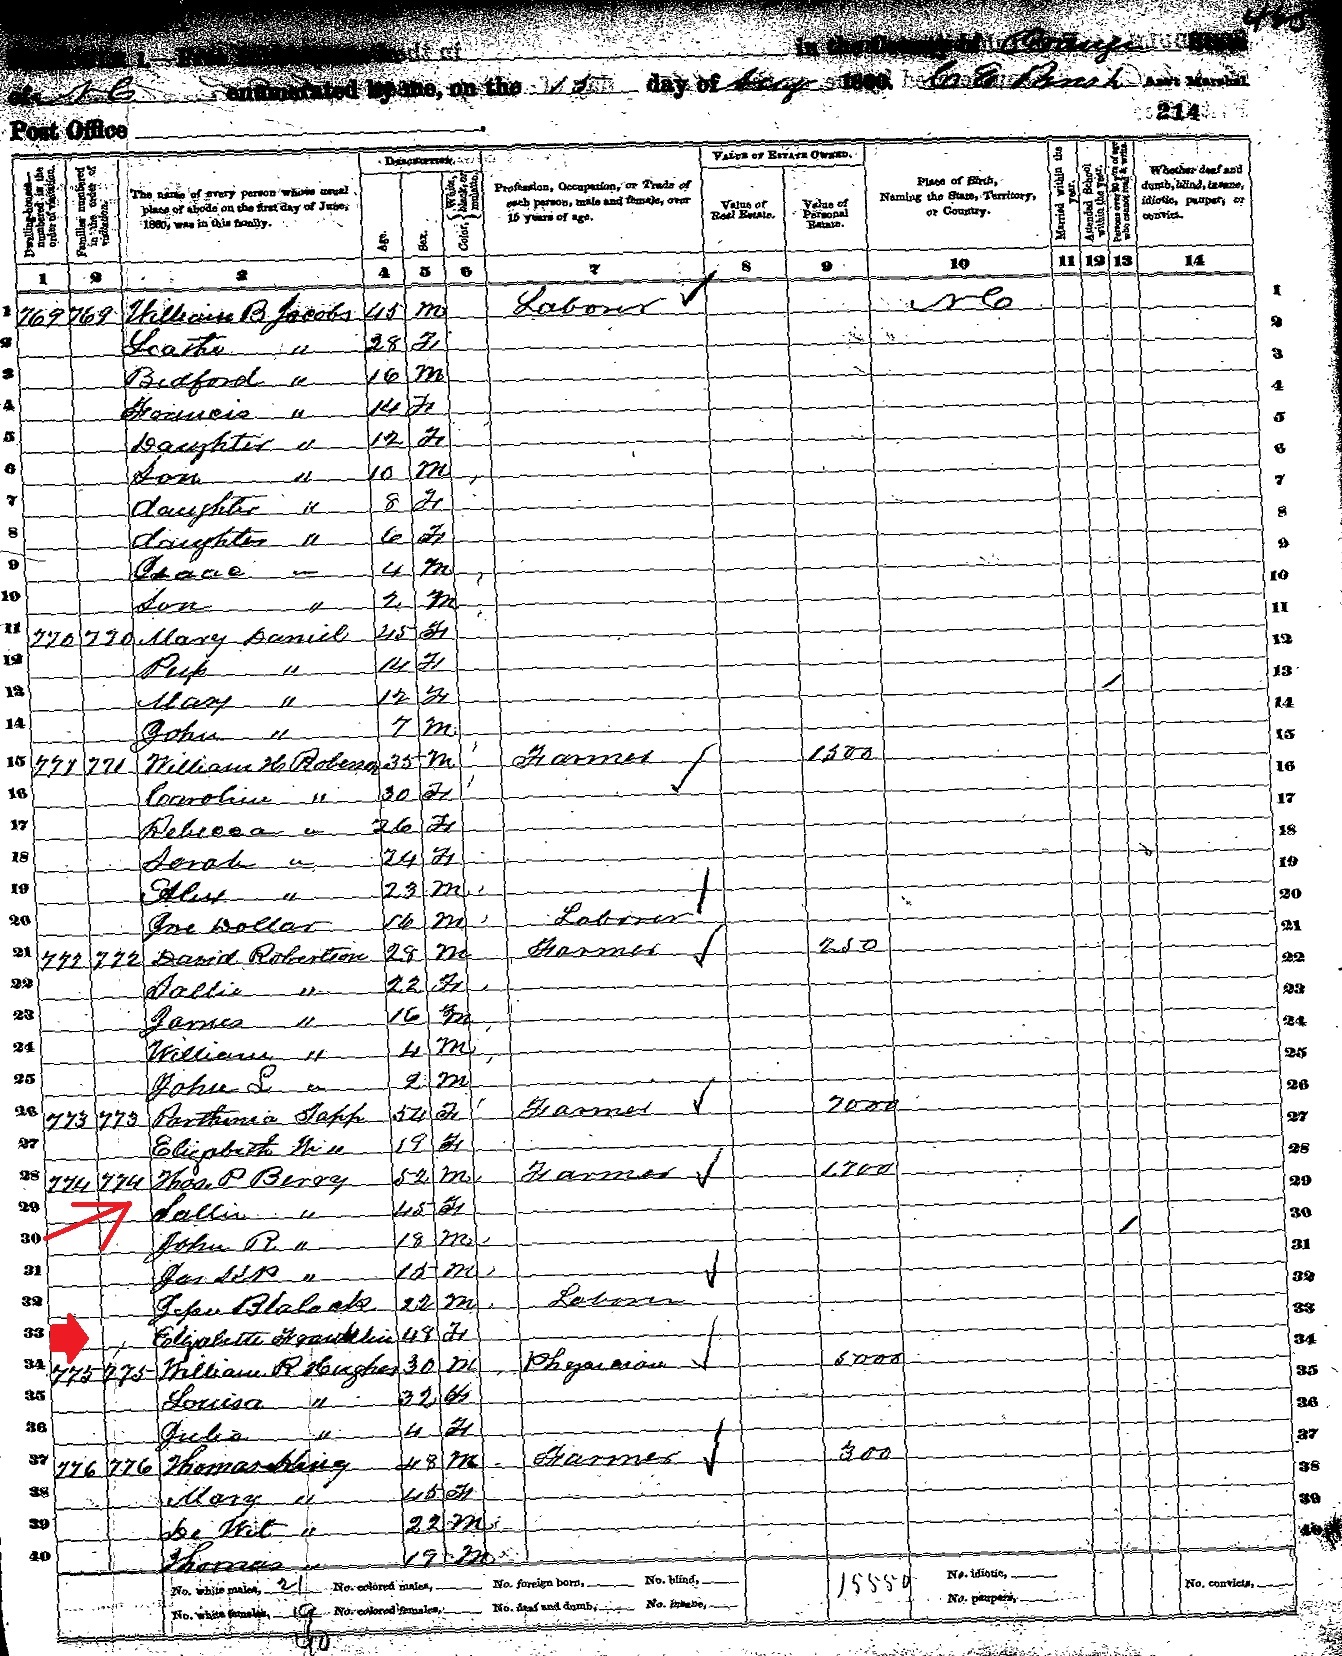 in the County of Orange State
of N C enumerated by me, on the 15 day of 1860. Ass't Marshal
214
Post Office
DESCRIPTION. VALUE OF ESTATE OWNED.
Dwelling-house—numbered in the order of visitation. Families numbered in the order of visitation. The name of every person whose usual place of abode on the first day of June, 1860, was in this family. Age. Sex. Color, White, black, or mulatto. Profession, Occupation, or Trade of each person, male and female, over 15 years of age. Value of Real Estate. Value of Personal Estate. Place of Birth, Naming the State, Territory, or Country. Married within the year. Attended School within the year. Persons over 20 y'rs of age who cannot read & write. Whether deaf and dumb, blind, insane, idiotic, pauper, or convict.
1 2 3 4 5 6 7 8 9 10 11 12 13 14
1 769 769 William B Jacobs 45 M Laborer N C 1
2 " 28 F 2
3 Bedford " 16 M 3
4 Francis " 14 F 4
5 Daughter " 12 F 5
6 Son " 10 M 6
7 daughter " 8 F 7
8 daughter " 6 F 8
9 Isaac " 4 M 9
10 Son " 2 M 10
11 770 770 Mary Daniel 45 F 11
12 " 14 F 12
13 Mary " 12 F 13
14 John " 7 M 14
15 771 771 William H 35 M Farmer 1500 15
16 Caroline " 30 F 16
17 Rebecca " 26 F 17
18 Sarah " 24 F 18
19 " 23 M 19
20 Joe Dollar 16 M Laborer 20
21 772 772 David Robertson 28 M Farmer 250 21
22 Sallie " 22 F 22
23 James " 16 M 23
24 William " 4 M 24
25 John S " 2 M 25
26 773 773 Parthenia Tapp 54 F Farmer 7000 26
27 Elizabeth " 19 F 27
28 774 774 Thos P Berry 52 M Farmer 1700 28
29 Sallie " 45 F 29
30 John R " 18 M 30
31 Jas " 15 M 31
32 Blalock 22 M Laborer 32
33 Elizabeth Franklin 48 F 33
34 775 775 William R Hughes 30 M Physician 5000 34
35 Louisa " 32 F 35
36 Julia " 4 F 36
37 776 776 Thomas King 48 M Farmer 300 37
38 Mary " 45 F 38
39 De Wit " 22 M 39
40 Thomas " 19 M 40
No. white males, 21 No. colored males, No. foreign born, No. blind, 15550 No. idiotic, No. convicts,
No. white females, 19 No. colored females, No. deaf and dumb, No. insane, No. paupers,
40